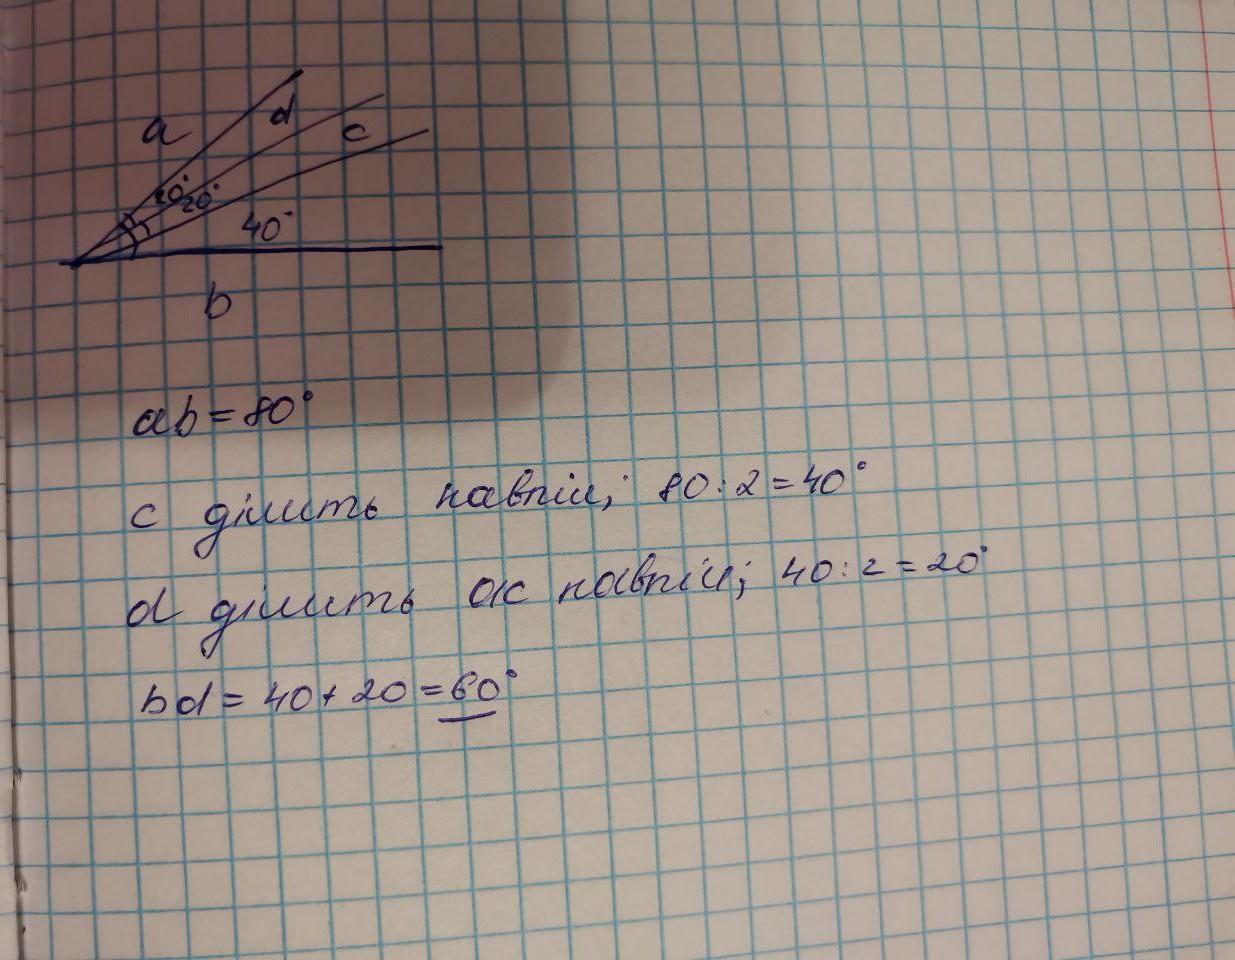 a
d
c
20°
20°
40°
b
ab = 80°
c ділить навпіл; 80:2=40°
d ділить ac навпіл; 40:2=20°
bd = 40 + 20 = 60°